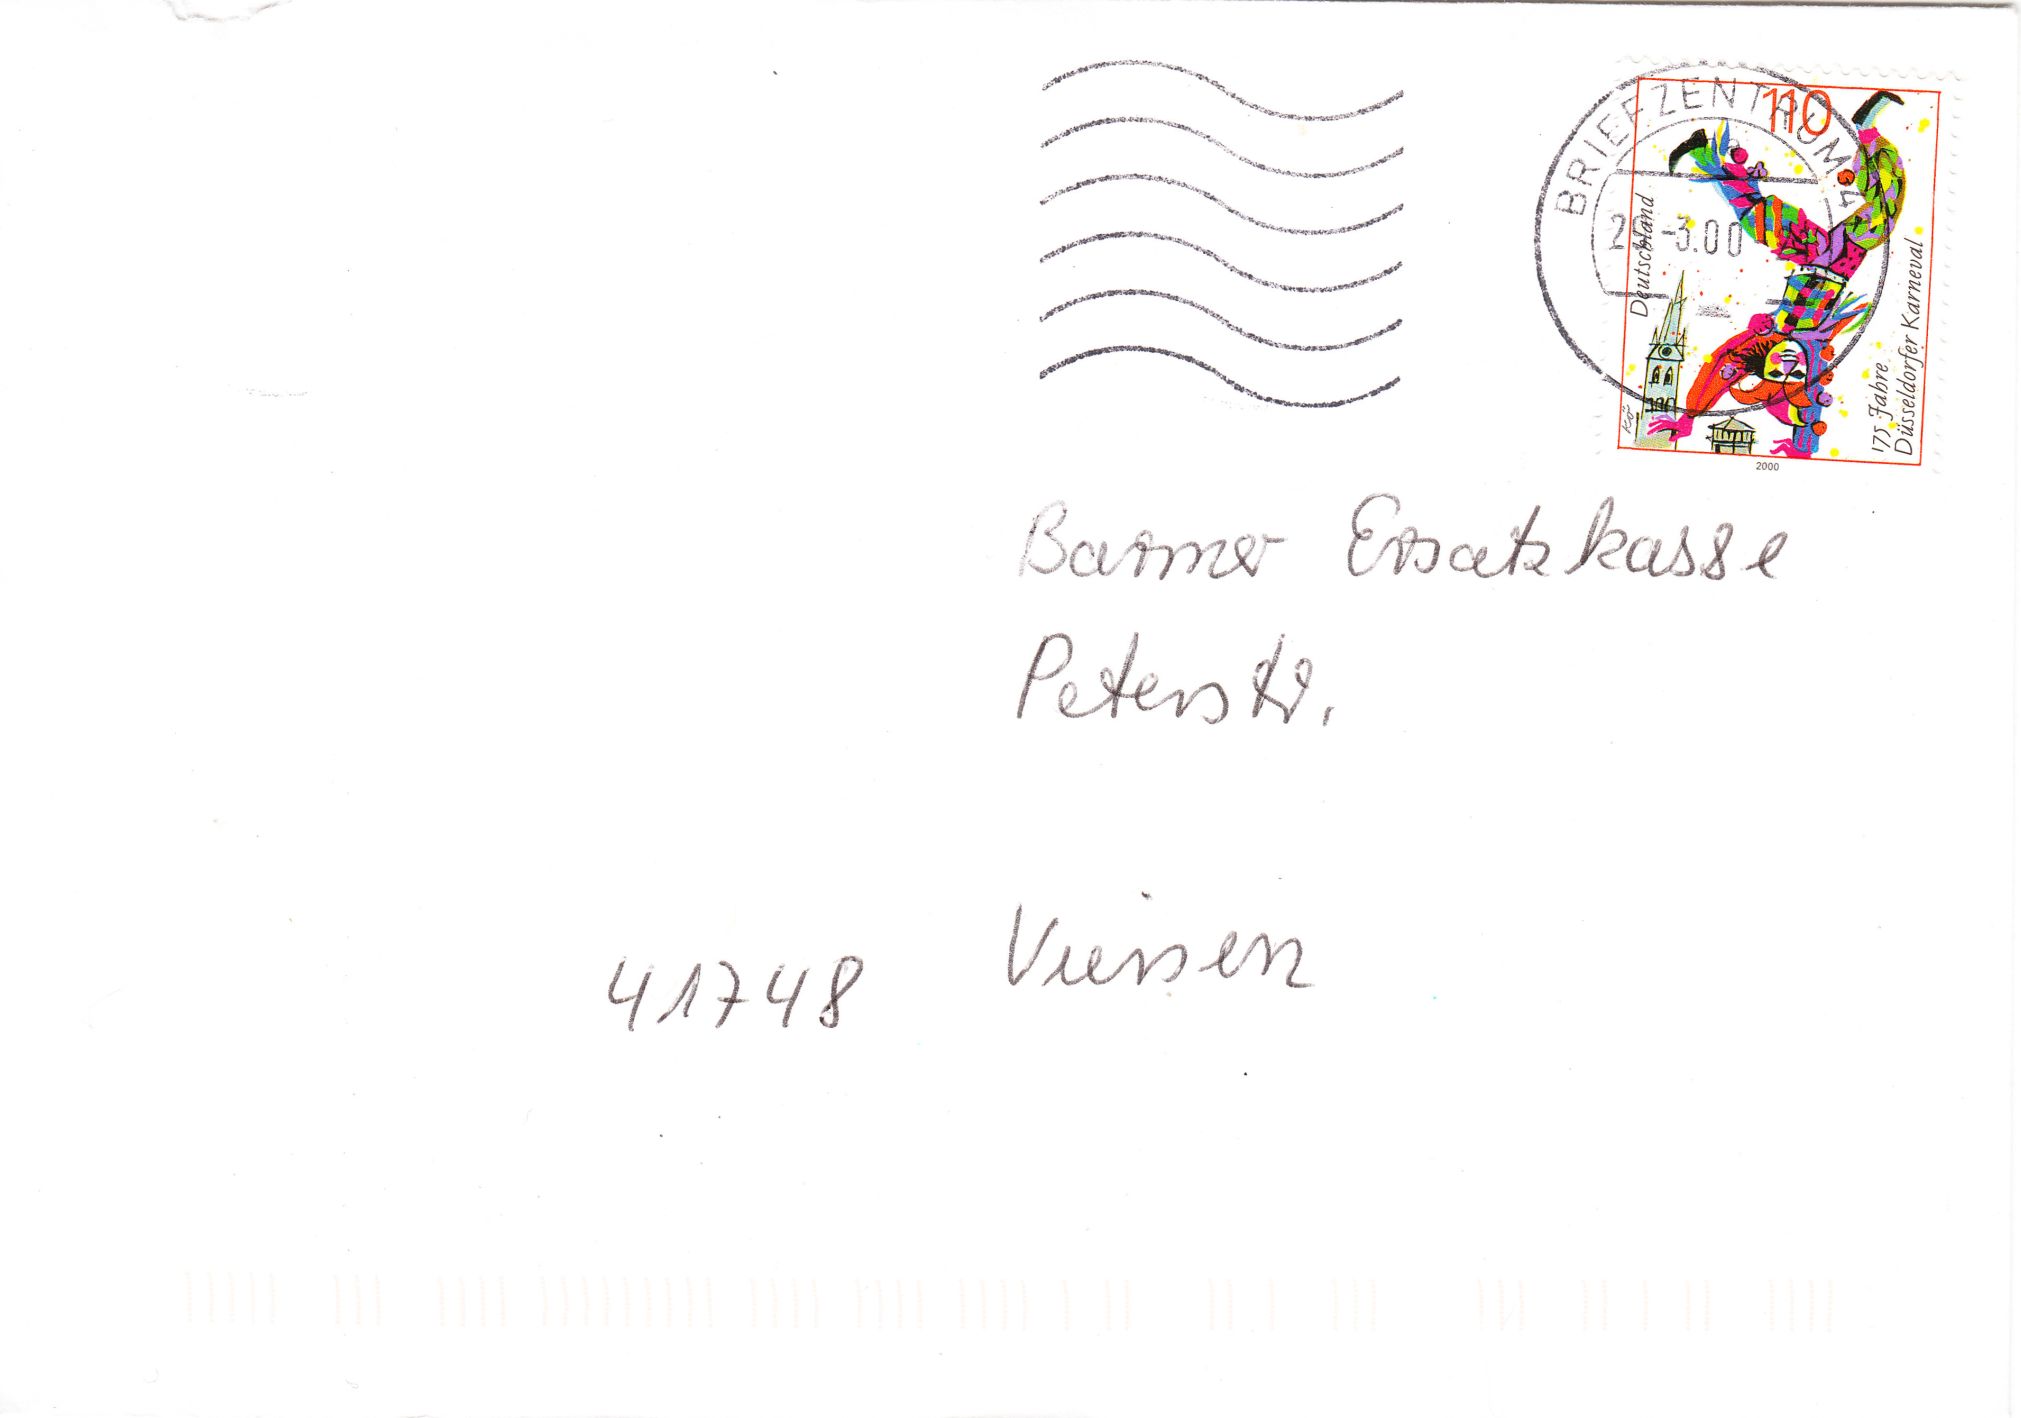 BRIEFZENTRUM
110
-3.00
Deutschland
175 Jahre
Düsseldorfer Karneval
Kö
2000
Barmer Ersatzkasse
Peterstr.
41748 Viersen